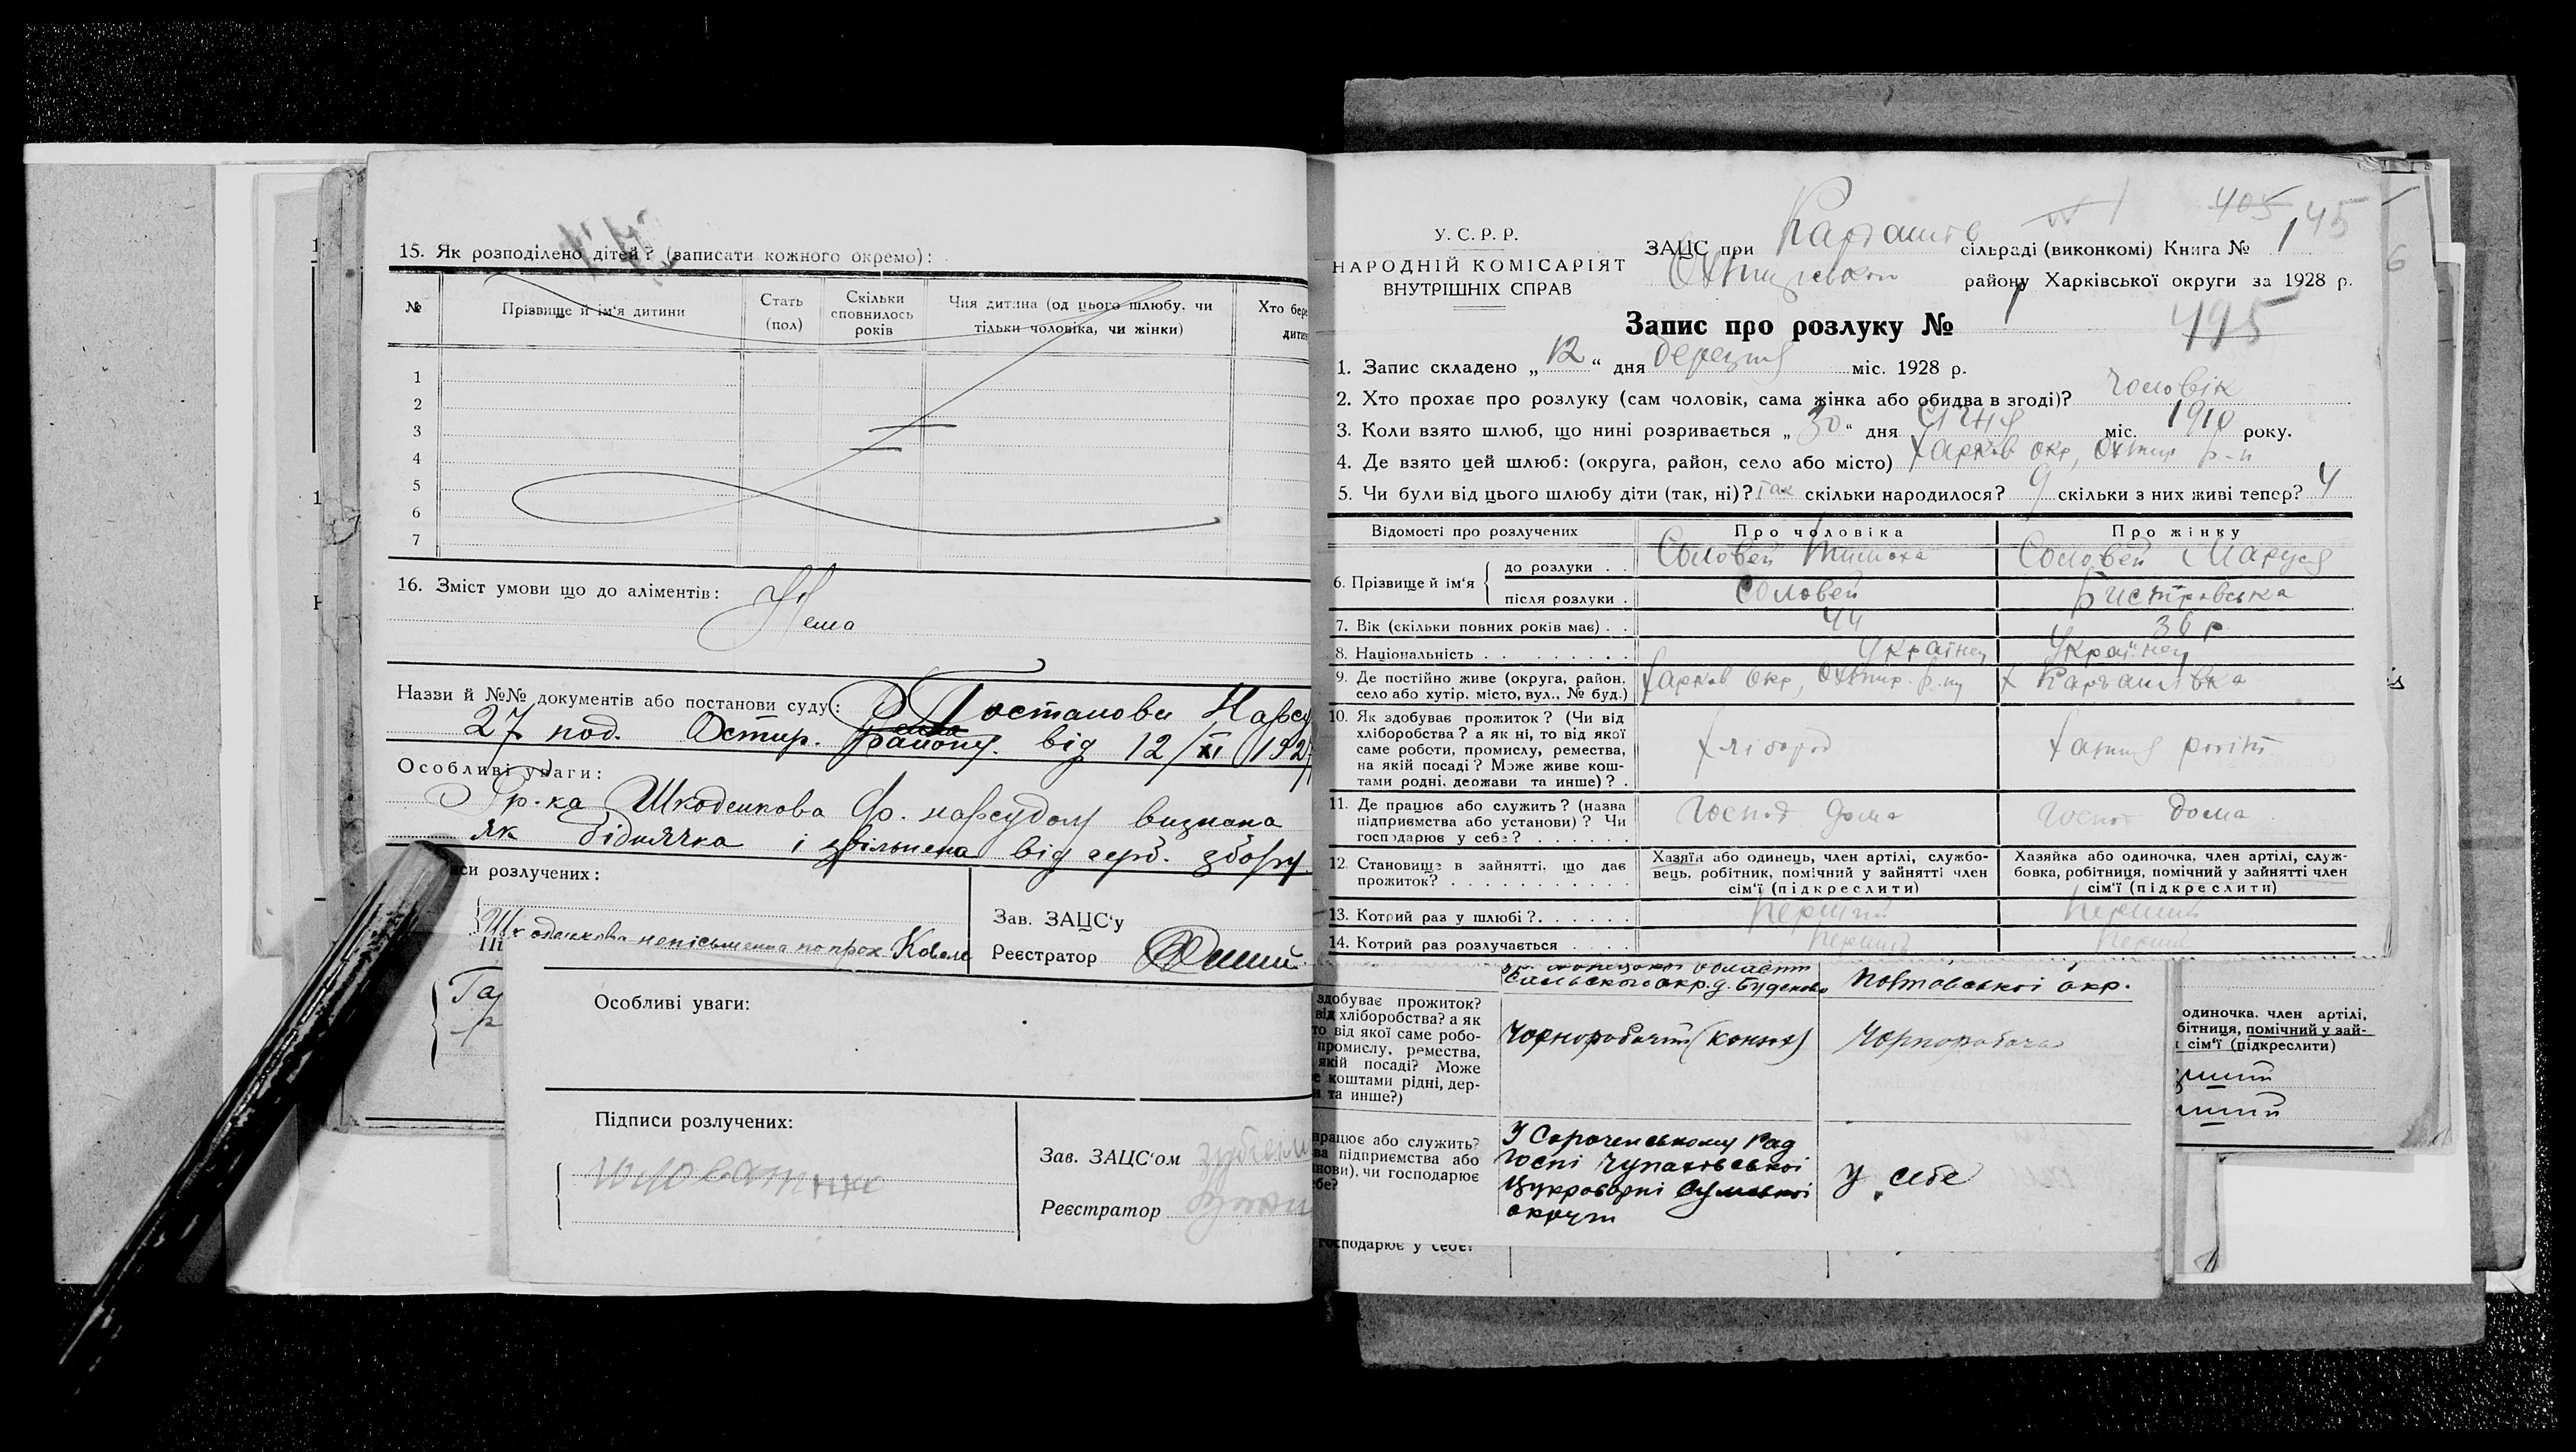 15. Як розподілено дітей? (записати кожного окремо):
№ Прізвище й ім'я дитини Стать (пол) Скільки сповнилось років Чия дитина (од цього шлюбу, чи тільки чоловіка, чи жінки) Хто бере
дити
1
2
3
4
5
6
7
16. Зміст умови що до аліментів: Нема
Назви й №№ документів або постанови суду: Постанова Нарсу
27 под. Охтир. району. від 12/XI 192
Особливі уваги:
Гр-ка Шкоденкова Ф. нарсудом визнана
як біднячка і звільнена від герб. збору.
си розлучених:
Шкоденкова неписьменна по прох Ковал
Зав. ЗАЦС'у
Реєстратор
Особливі уваги:
Підписи розлучених:
Зав. ЗАЦС'ом
Реєстратор
У. С. Р. Р.
НАРОДНІЙ КОМІСАРІЯТ
ВНУТРІШНІХ СПРАВ
405 145
6
ЗАЦС при сільраді (виконкомі) Книга № 1
району Харківської округи за 1928 р.
Запис про розлуку № 1
495
1. Запис складено „12“ дня березня міс. 1928 р.
2. Хто прохає про розлуку (сам чоловік, сама жінка або обидва в згоді)? чоловік
3. Коли взято шлюб, що нині розривається „30“ дня січня міс. 1910 року.
4. Де взято цей шлюб: (округа, район, село або місто) Харків окр, Охтир р-н
5. Чи були від цього шлюбу діти (так, ні)? так скільки народилося? 9 скільки з них живі тепер? 4
Відомості про розлучених Про чоловіка Про жінку
6. Прізвище й ім'я до розлуки . . Соловей Тимоха Соловей Маруся
після розлуки . Соловей Бистровська
7. Вік (скільки повних років має) . . 44
8. Національність . . . . . . . . Українец Українец
9. Де постійно живе (округа, район,
село або хутір, місто, вул., № буд.) Харков окр, Охтир. р-ну х Карташівка
10. Як здобуває прожиток? (Чи від
хліборобства? а як ні, то від якої
саме роботи, промислу, ремества,
на якій посаді? Може живе кош-
тами родні, держави та инше)? . хлібороб хатня робіт
11. Де працює або служить? (назва
підприємства або установи)? Чи
господарює у себе? . . . . . . Господ дома Господ дома
12. Становище в зайнятті, що дає
прожиток? . . . . . . . . . . .
Хазяїн або одинець, член артілі, службо-
вець, робітник, помічний у зайнятті член
сім'ї (підкреслити)
Хазяйка або одиночка, член артілі, служ-
бовка, робітниця, помічний у зайнятті член
сім'ї (підкреслити)
13. Котрий раз у шлюбі?. . . . . . перший перший
14. Котрий раз розлучається . . . . перший перший
Сальського окр. д. Буденово Полтавської окр.
здобуває прожиток?
від хліборобства? а як
то від якої саме робо-
промислу, ремества,
якій посаді? Може
коштами рідні, дер-
та инше?)
Чорноробочий (конюх) Чорноробоча
працює або служить?
ва підприємства або
нови), чи господарює
бе?
У Сороченському Рад
Госпі Чупахівської
Цукроварні Сумської
округи
у себе
господарює у себе?
одиночка, член артілі,
бітниця, помічний у зай-
сім'ї (підкреслити)